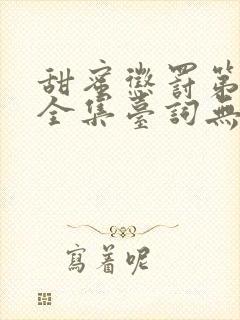 甜蜜懲罰第
全集臺詞無
寫着呢